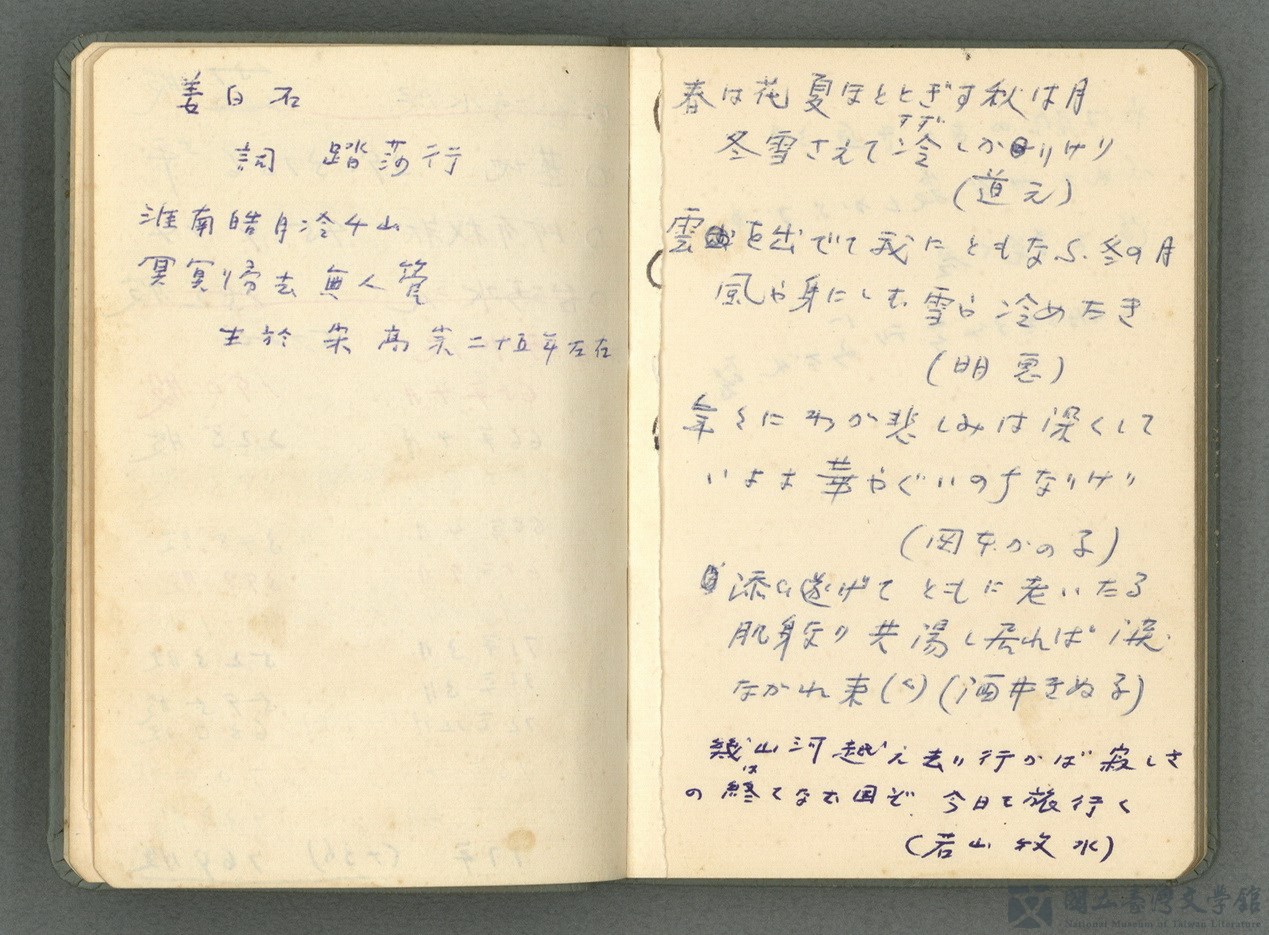 姜白石
詞 踏莎行
淮南皓月冷千山
冥冥归去無人管
生於宋高宗二十五年左右
春は花夏ほととぎす秋は月
冬雪さえて冷しかりけり
すず
(道元)
雲を出でて我にともなふ冬の月
風や身にしむ雪や冷めたき
(明恵)
年々にわが悲しみは深くして
いよよ華やぐいのちなりけり
(岡本かの子)
添ひ遂げてともに老いたる
肌身なり共湯し居れば涙
ながれ来(く)(酒井きぬ子)
幾山河越え去り行かば寂しさ
の終てなむ国ぞ 今日も旅行く
は
(若山牧水)
國立臺灣文學館
National Museum of Taiwan Literature